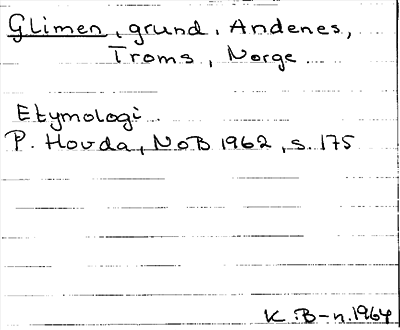 Glimen, grund, Andenes,
Troms, Norge
Etymologi
P. Hovda, NoB 1962, s. 175
K. B-n. 1964